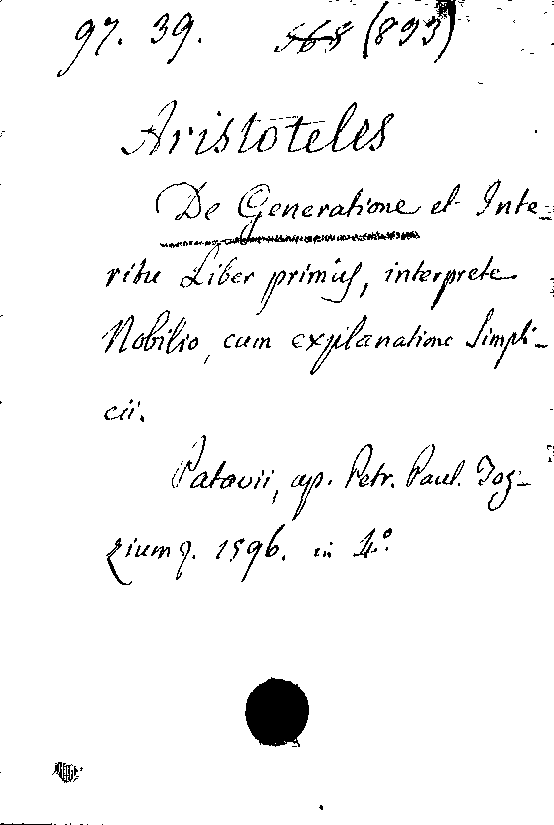 97. 39. 568 (893)
Aristoteles
De Generatione et Inte-
ritu Liber primus, interprete
Nobilio, cum explanatione Simpli-
cii.
Patavii, ap. Petr. Paul. Toz-
zium q. 1596. in 4.º